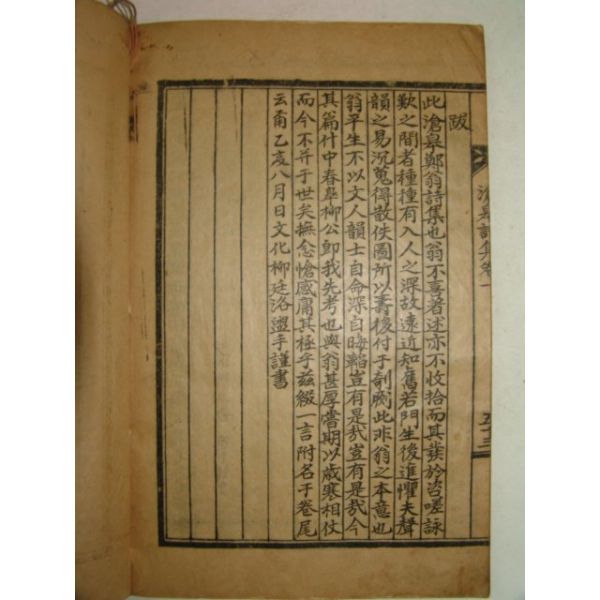 滄皐詩集卷一
五十三
跋
此滄皐鄭翁詩集也翁不喜著述亦不收拾而其發於咨嗟詠
歎之間者種種有入人之深故遠近知舊若門生後進懼夫聲
韻之易沉蒐得散佚圖所以壽後付于剞劂此非翁之本意也
翁平生不以文人韻士自命深自晦韜豈有是哉豈有是哉今
其篇什中春皐柳公卽我先考也與翁甚厚嘗期以歲寒相仗
而今不幷于世矣撫念愴感庸其極乎玆綴一言附名于卷尾
云甭乙亥八月日文化柳廷洛盥手謹書